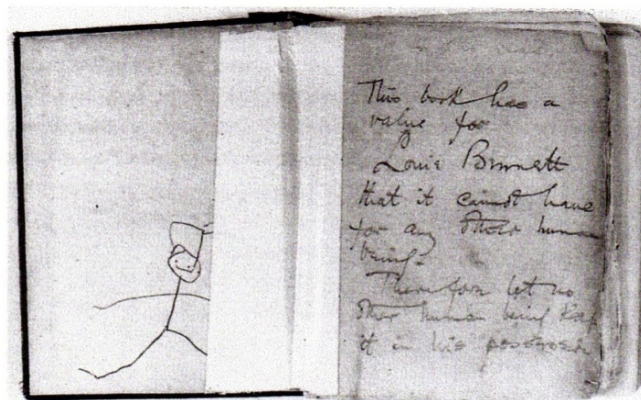 This book has a
value for
Louie Bennett
that it cannot have
for any other human
being.
Therefore let no
other human being keep
it in his possession